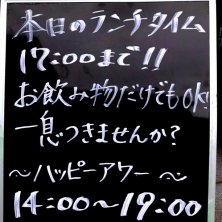 本日のランチタイム
17:00まで!!
お飲み物だけでもOK!
一息つきませんか?
～ハッピーアワー～
14:00～19:00